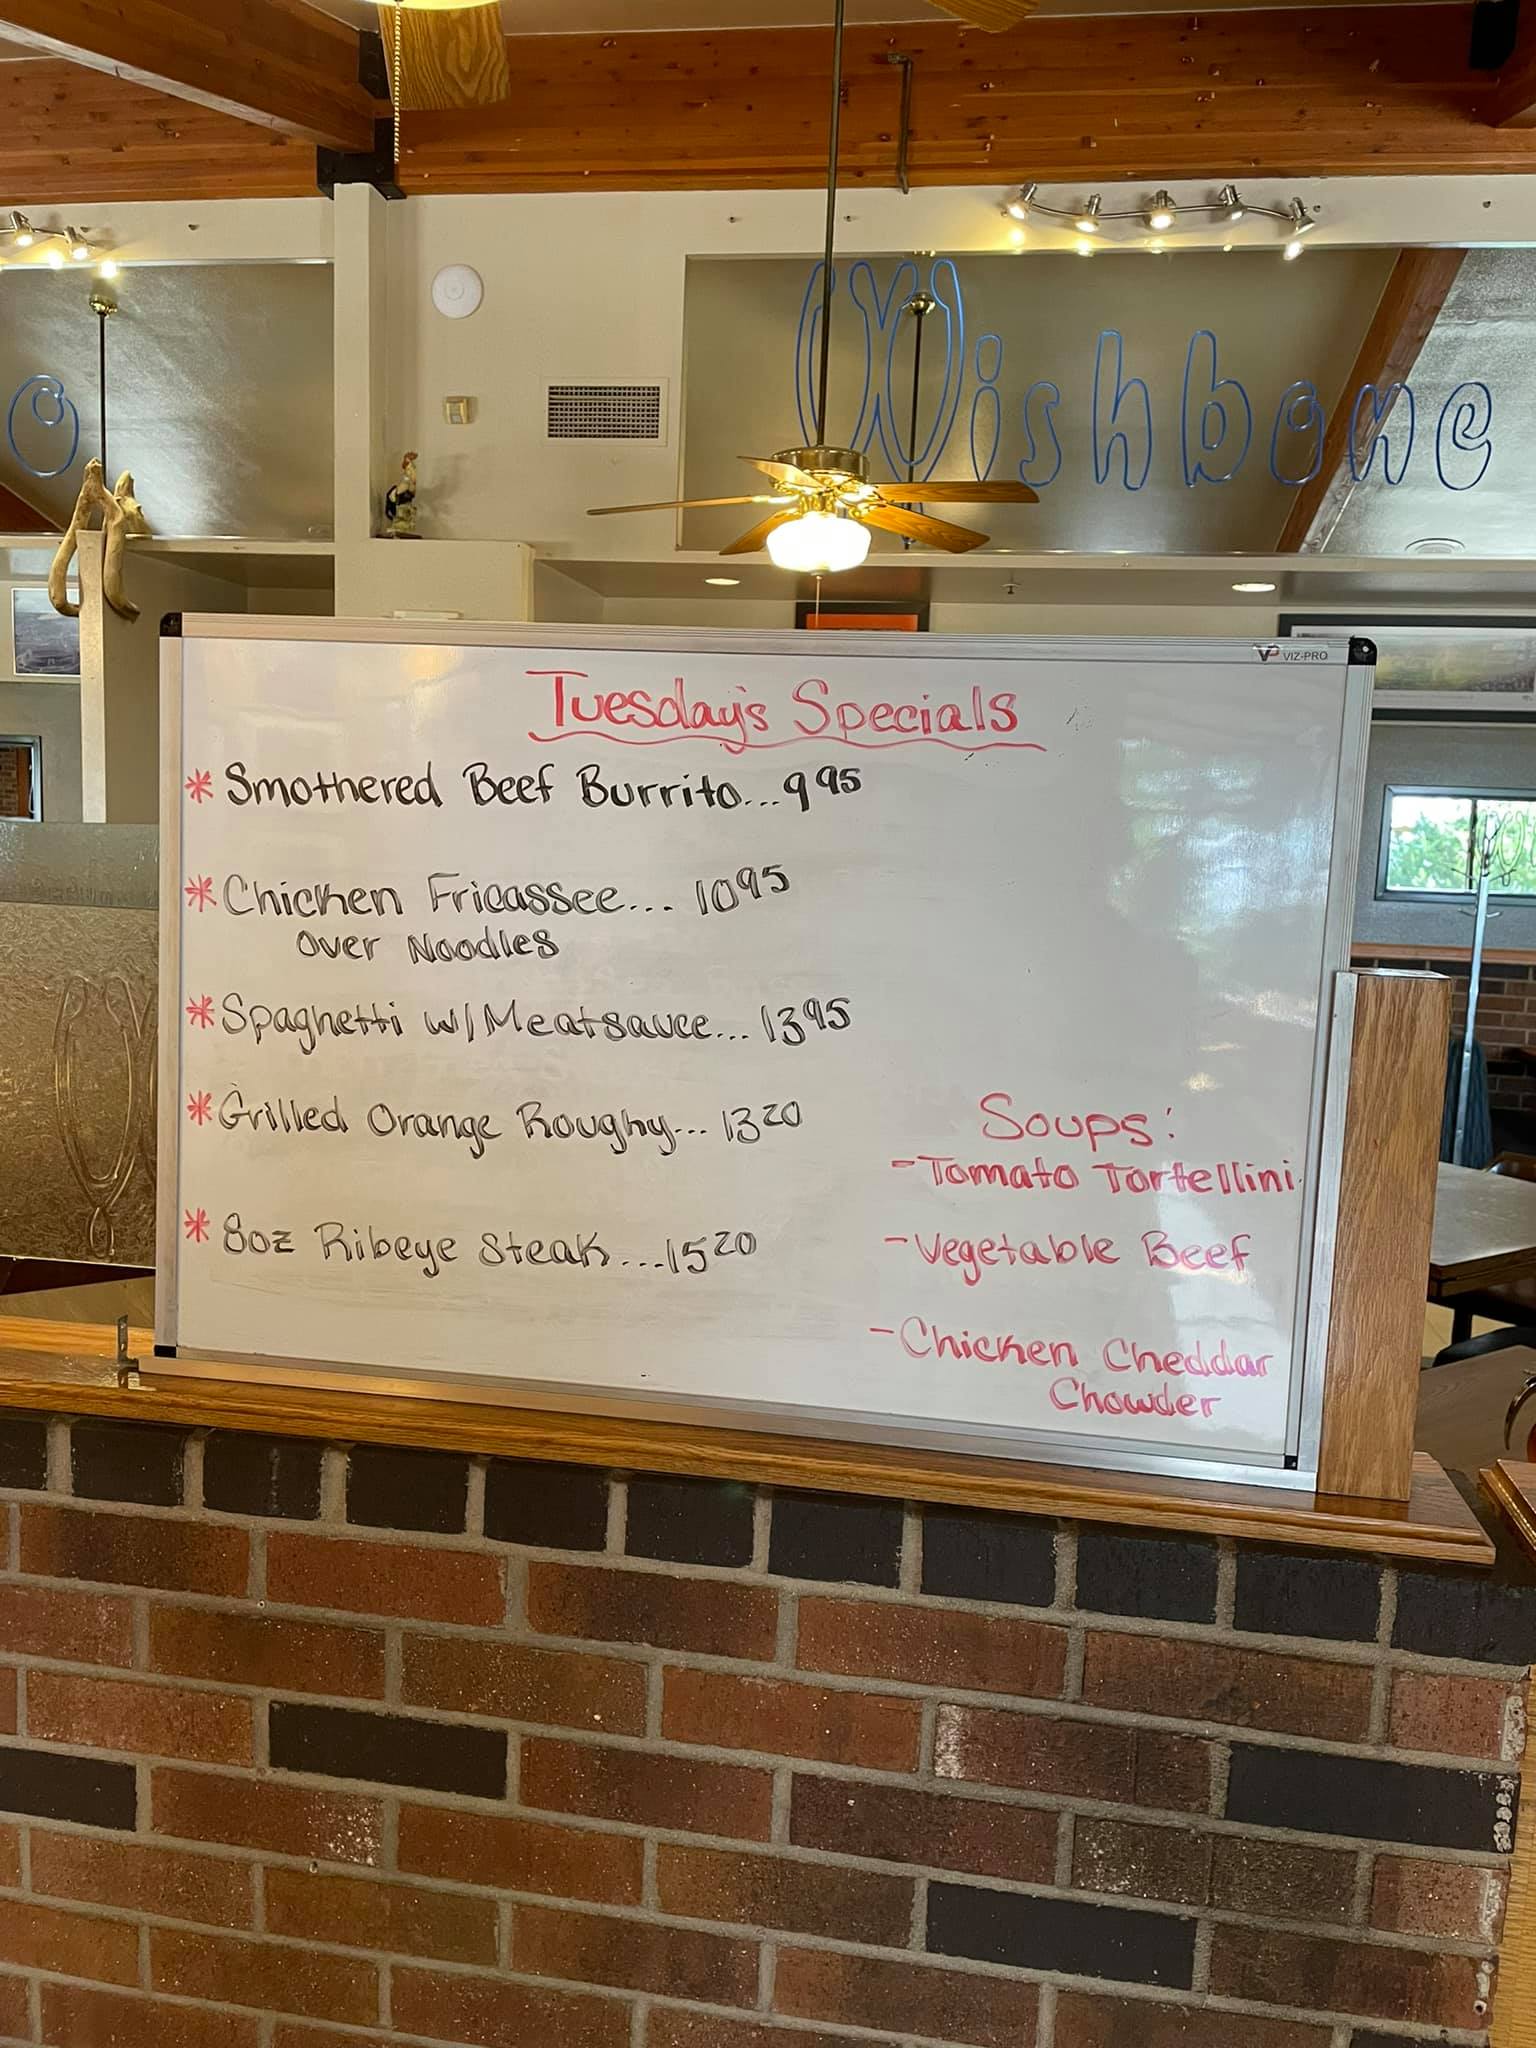 Wishbone
VP VIZ-PRO
Tuesday's Specials
* Smothered Beef Burrito... 9 95
* Chicken Fricassee... 10 95
Over Noodles
* Spaghetti w/ Meatsauce... 13 95
* Grilled Orange Roughy... 13 20
* 8oz Ribeye Steak... 15 20
Soups:
- Tomato Tortellini
- Vegetable Beef
- Chicken Cheddar
Chowder